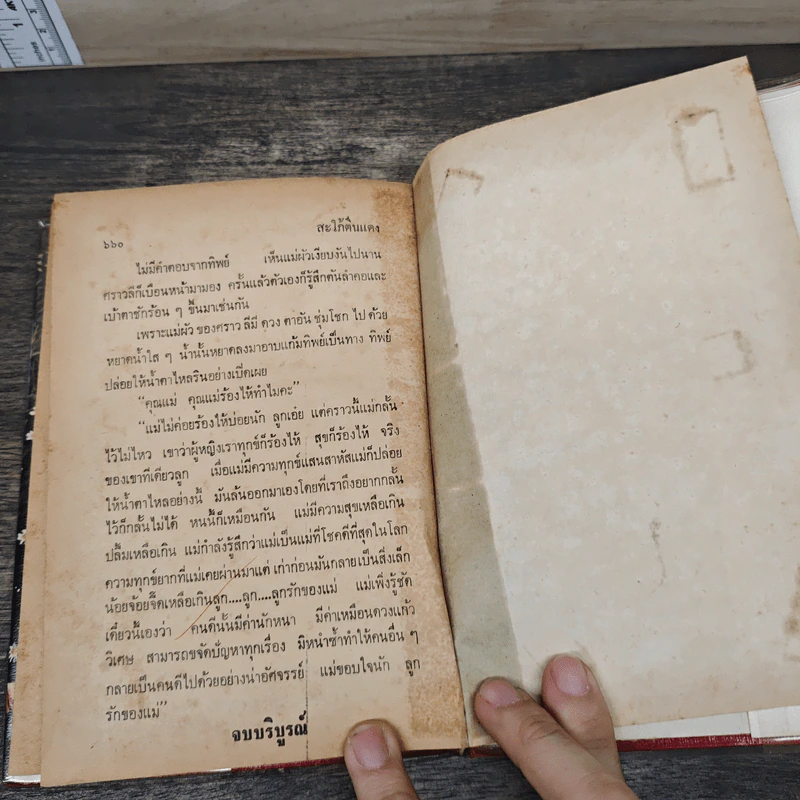 สะใภ้ตีนแดง
๖๖๐
ไม่มีคำตอบจากทิพย์ เห็นแม่ผัวเงียบงันไปนาน
ศราวลีก็เบือนหน้ามามอง ครั้นแล้วตัวเองก็รู้สึกตันลำคอและ
เบ้าตาชักร้อน ๆ ขึ้นมาเช่นกัน
เพราะแม่ผัว ของศราว ลีมี ดวง ตาอัน ชุ่มโชก ไป ด้วย
หยาดน้ำใส ๆ น้ำนั้นหยาดลงมาอาบแก้มทิพย์เป็นทาง ทิพย์
ปล่อยให้น้ำตาไหลรินอย่างเปิดเผย
“คุณแม่ คุณแม่ร้องไห้ทำไมคะ”
“แม่ไม่ค่อยร้องไห้บ่อยนัก ลูกเอ๋ย แต่คราวนี้แม่กลั้น
ไว้ไม่ไหว เขาว่าผู้หญิงเราทุกข์ก็ร้องไห้ สุขก็ร้องไห้ จริง
ของเขาทีเดียวลูก เมื่อแม่มีความทุกข์แสนสาหัสแม่ก็ปล่อย
ให้น้ำตาไหลอย่างนี้ มันล้นออกมาเองโดยที่เราถึงอยากกลั้น
ไว้ก็กลั้นไม่ได้ หนนี้ก็เหมือนกัน แม่มีความสุขเหลือเกิน
ปลื้มเหลือเกิน แม่กำลังรู้สึกว่าแม่เป็นแม่ที่โชคดีที่สุดในโลก
ความทุกข์ยากที่แม่เคยผ่านมาแต่ เก่าก่อนมันกลายเป็นสิ่งเล็ก
น้อยจ้อยจี๊ดเหลือเกินลูก....ลูก....ลูกรักของแม่ แม่เพิ่งรู้ชัด
เดี๋ยวนี้เองว่า คนดีนั้นมีค่านักหนา มีค่าเหมือนดวงแก้ว
วิเศษ สามารถขจัดปัญหาทุกเรื่อง มิหนำซ้ำทำให้คนอื่น ๆ
กลายเป็นคนดีไปด้วยอย่างน่าอัศจรรย์ แม่ขอบใจนัก ลูก
รักของแม่”
จบบริบูรณ์